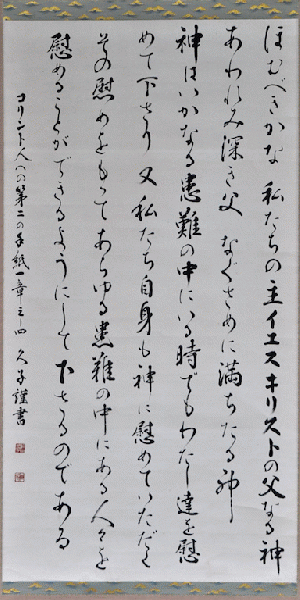 ほむべきかな 私たちの主イエスキリストの父なる神
あわれみ深き父 なぐさめに満ちたる神
神はいかなる患難の中にいる時でもわたし達を慰
めて下さり 又 私たち自身も神に慰めていただく
その慰めをもってあらゆる患難の中にある人々を
慰めることができるようにして下さるのである
コリント人への第二の手紙一章三 四 久子謹書